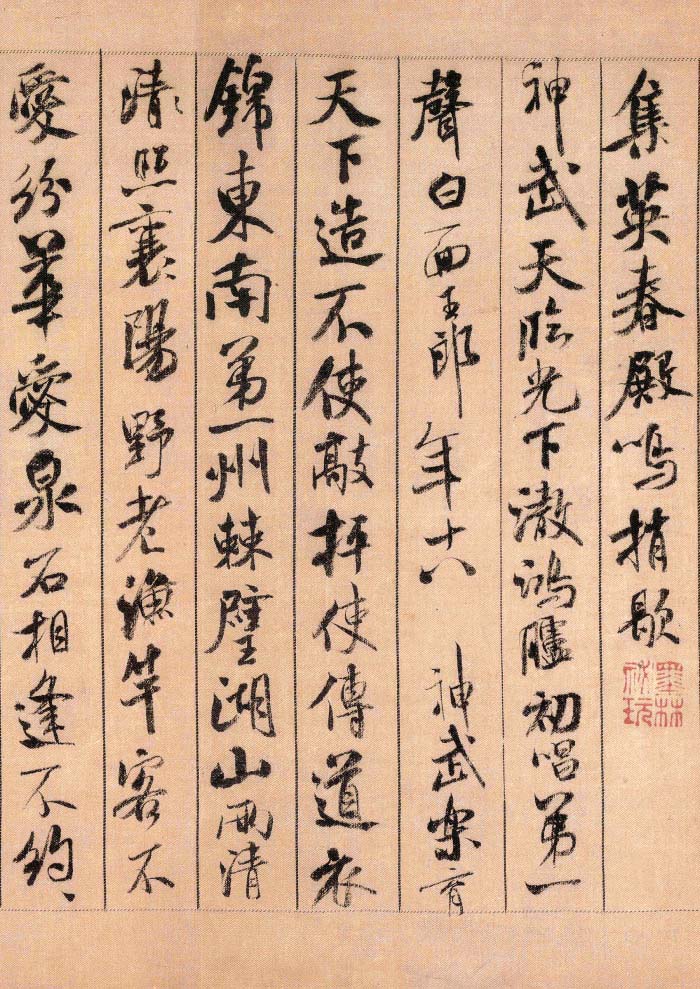 集英春殿鳴捎歇
神武天臨光下澈鴻臚初唱第一
聲白面玉郎年十八 神武樂育
天下造不使敲枰使傳道衣
錦東南第一州棘璧湖山兩清
清照襄陽野老漁竿客不
愛紛華愛泉石相逢不約〻
墨林秘玩